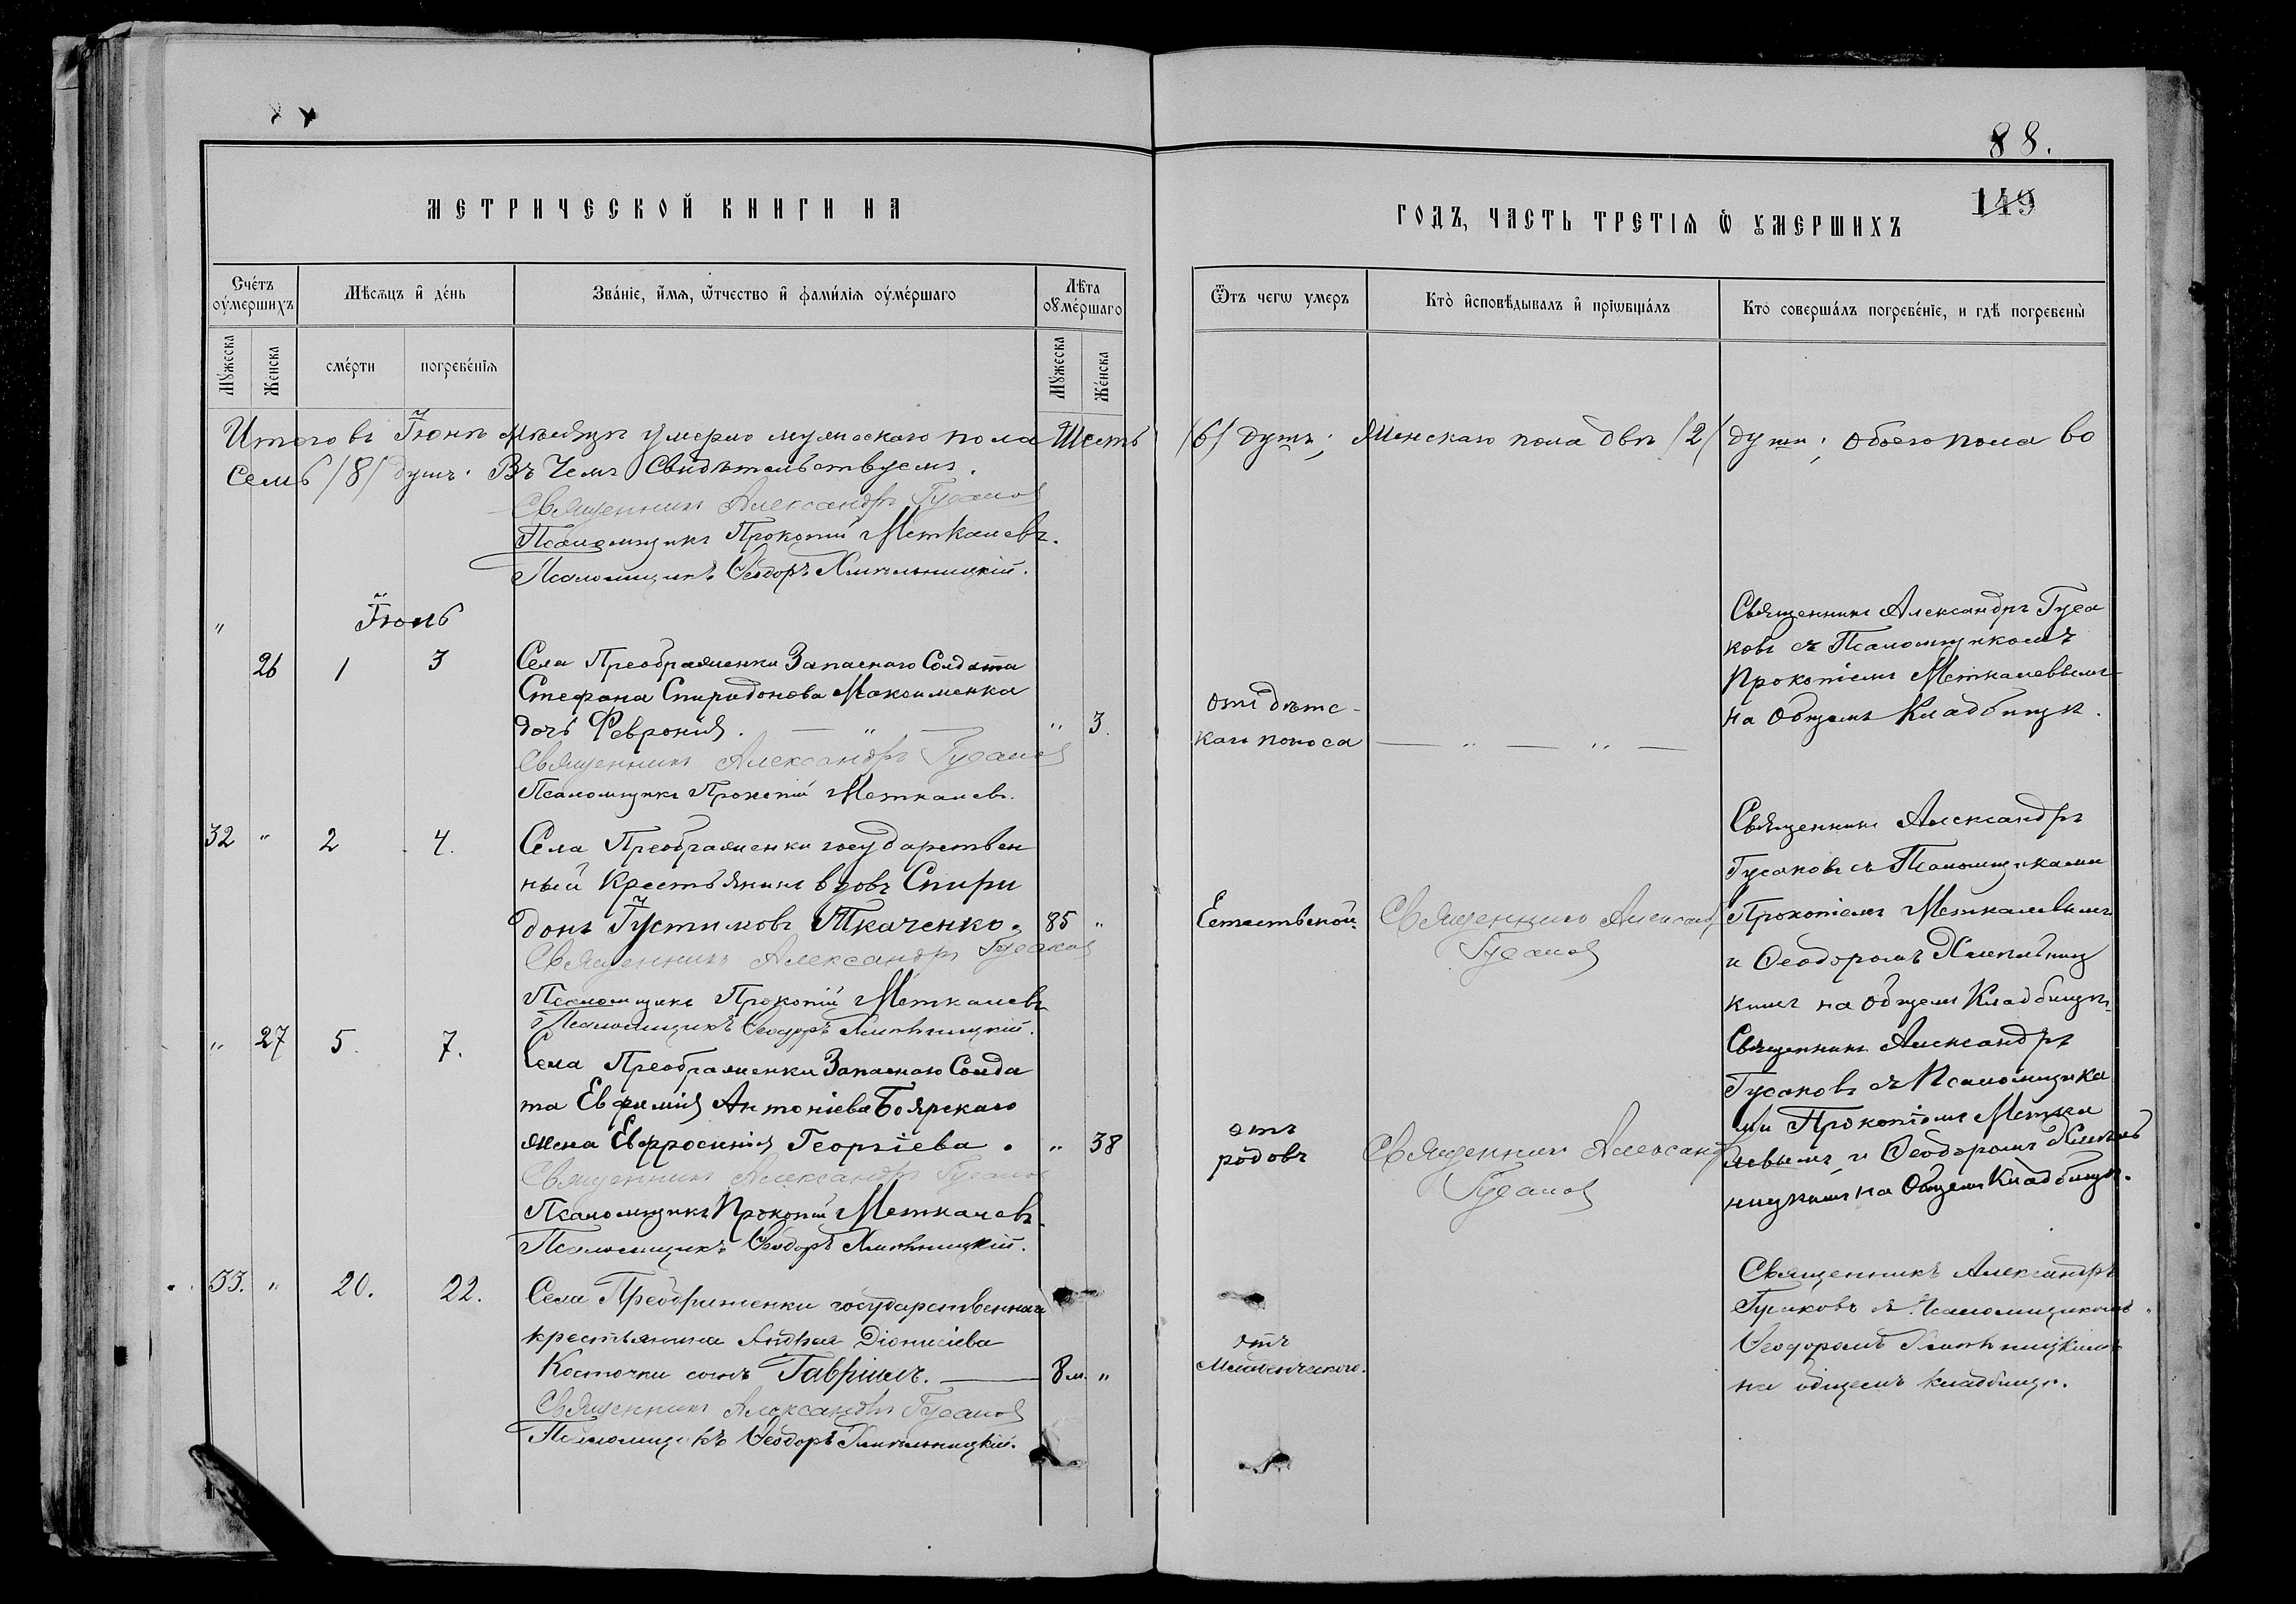 88.
149
МЕТРИЧЕСКОЙ КНИГИ НА
ГОДЪ, ЧАСТЬ ТРЕТІѦ Ѿ ОУМЕРШИХЪ
Сче́тъ оу́мершихъ
Мѣ́сѧцъ и҆ де́нь
Зва́нїе, и҆́мѧ, ѿтчество и҆ фами́лїѧ оу҆ме́ршаго
Лѣ́та оу҆ме́ршаго
Ѿтъ чегѡ умеръ
Кто̀ и҆сповѣ́дывалъ и҆ прїѡбща́лъ
Кто́ соверша́лъ погребе́нїе, и гдѣ̀ погребены̀
Му́жеска
Же́нска
сме́рти
погребе́нїѧ
Му́жеска
Же́нска
Итого въ Іюнѣ мѣсяцѣ умерло мужескаго пола Шесть /6/ душъ; Женскаго пола двѣ /2/ души; обоего пола во
семь /8/ душъ. Въ чемъ Свидѣтельствуемъ.
Священникъ Александръ Гусаков
Псаломщикъ Прокопій Меткалевъ.
Псаломщикъ Ѳеодоръ Хмѣльницкій.
" Іюль
26 1 3 Села Преображенки Запаснаго Солдата
Стефана Спиридонова Максименка
дочь Феврония. — " — " 3.
Священникъ Александръ Гусаков
Псаломщикъ Прокопій Меткалевъ.
отъ дѣтс-
каго поноса — " — " —
Священникъ Александръ Гуса
ковъ съ Псаломщикомъ
Прокопіемъ Меткалевымъ
на Общемъ Кладбищѣ.
32 " 2 4. Села Преображенки государствен
ный Крестьянинъ вдовъ Спири
донъ Іустимовъ Ткаченко. 85 "
Священникъ Александръ Гусаков
Псаломщикъ Прокопій Меткалевъ
Псаломщикъ Ѳеодоръ Хмѣльницкій.
Естественной
Священникъ Александ
Гусаков
Священникъ Александръ
Гусаковъ съ Псаломщиками
Прокопіемъ Меткалевымъ
и Ѳеодоромъ Хмельниц
кимъ на Общемъ Кладбищѣ.
" 27 5. 7. Села Преображенки Запаснаго Солда
та Евфимія Антоніева Боярскаго
жена Евфросинія Георгіева. " 38
Священникъ Александръ Гусаков
Псаломщикъ Прокопій Меткалевъ
Псаломщикъ Ѳеодоръ Хмѣльницкій.
отъ
родовъ
Священникъ Александ
Гусаков
Священникъ Александръ
Гусаковъ съ Псаломщика
ми Прокопіемъ Метка
левымъ и Ѳеодоромъ Хмель
ницкимъ на Общемъ Кладбищѣ.
33. " 20. 22. Села Преображенки государственнаго
крестьянина Андрея Діонисіева
Косточки сынъ Гавріилъ. — 8 м. "
Священникъ Александръ Гусаков
Псаломщикъ Ѳеодоръ Хмѣльницкій.
отъ
Младенческаго.
Священникъ Александръ
Гусаковъ съ Псаломщикомъ
Ѳеодоромъ Хмѣльницкимъ
на общемъ кладбищѣ.